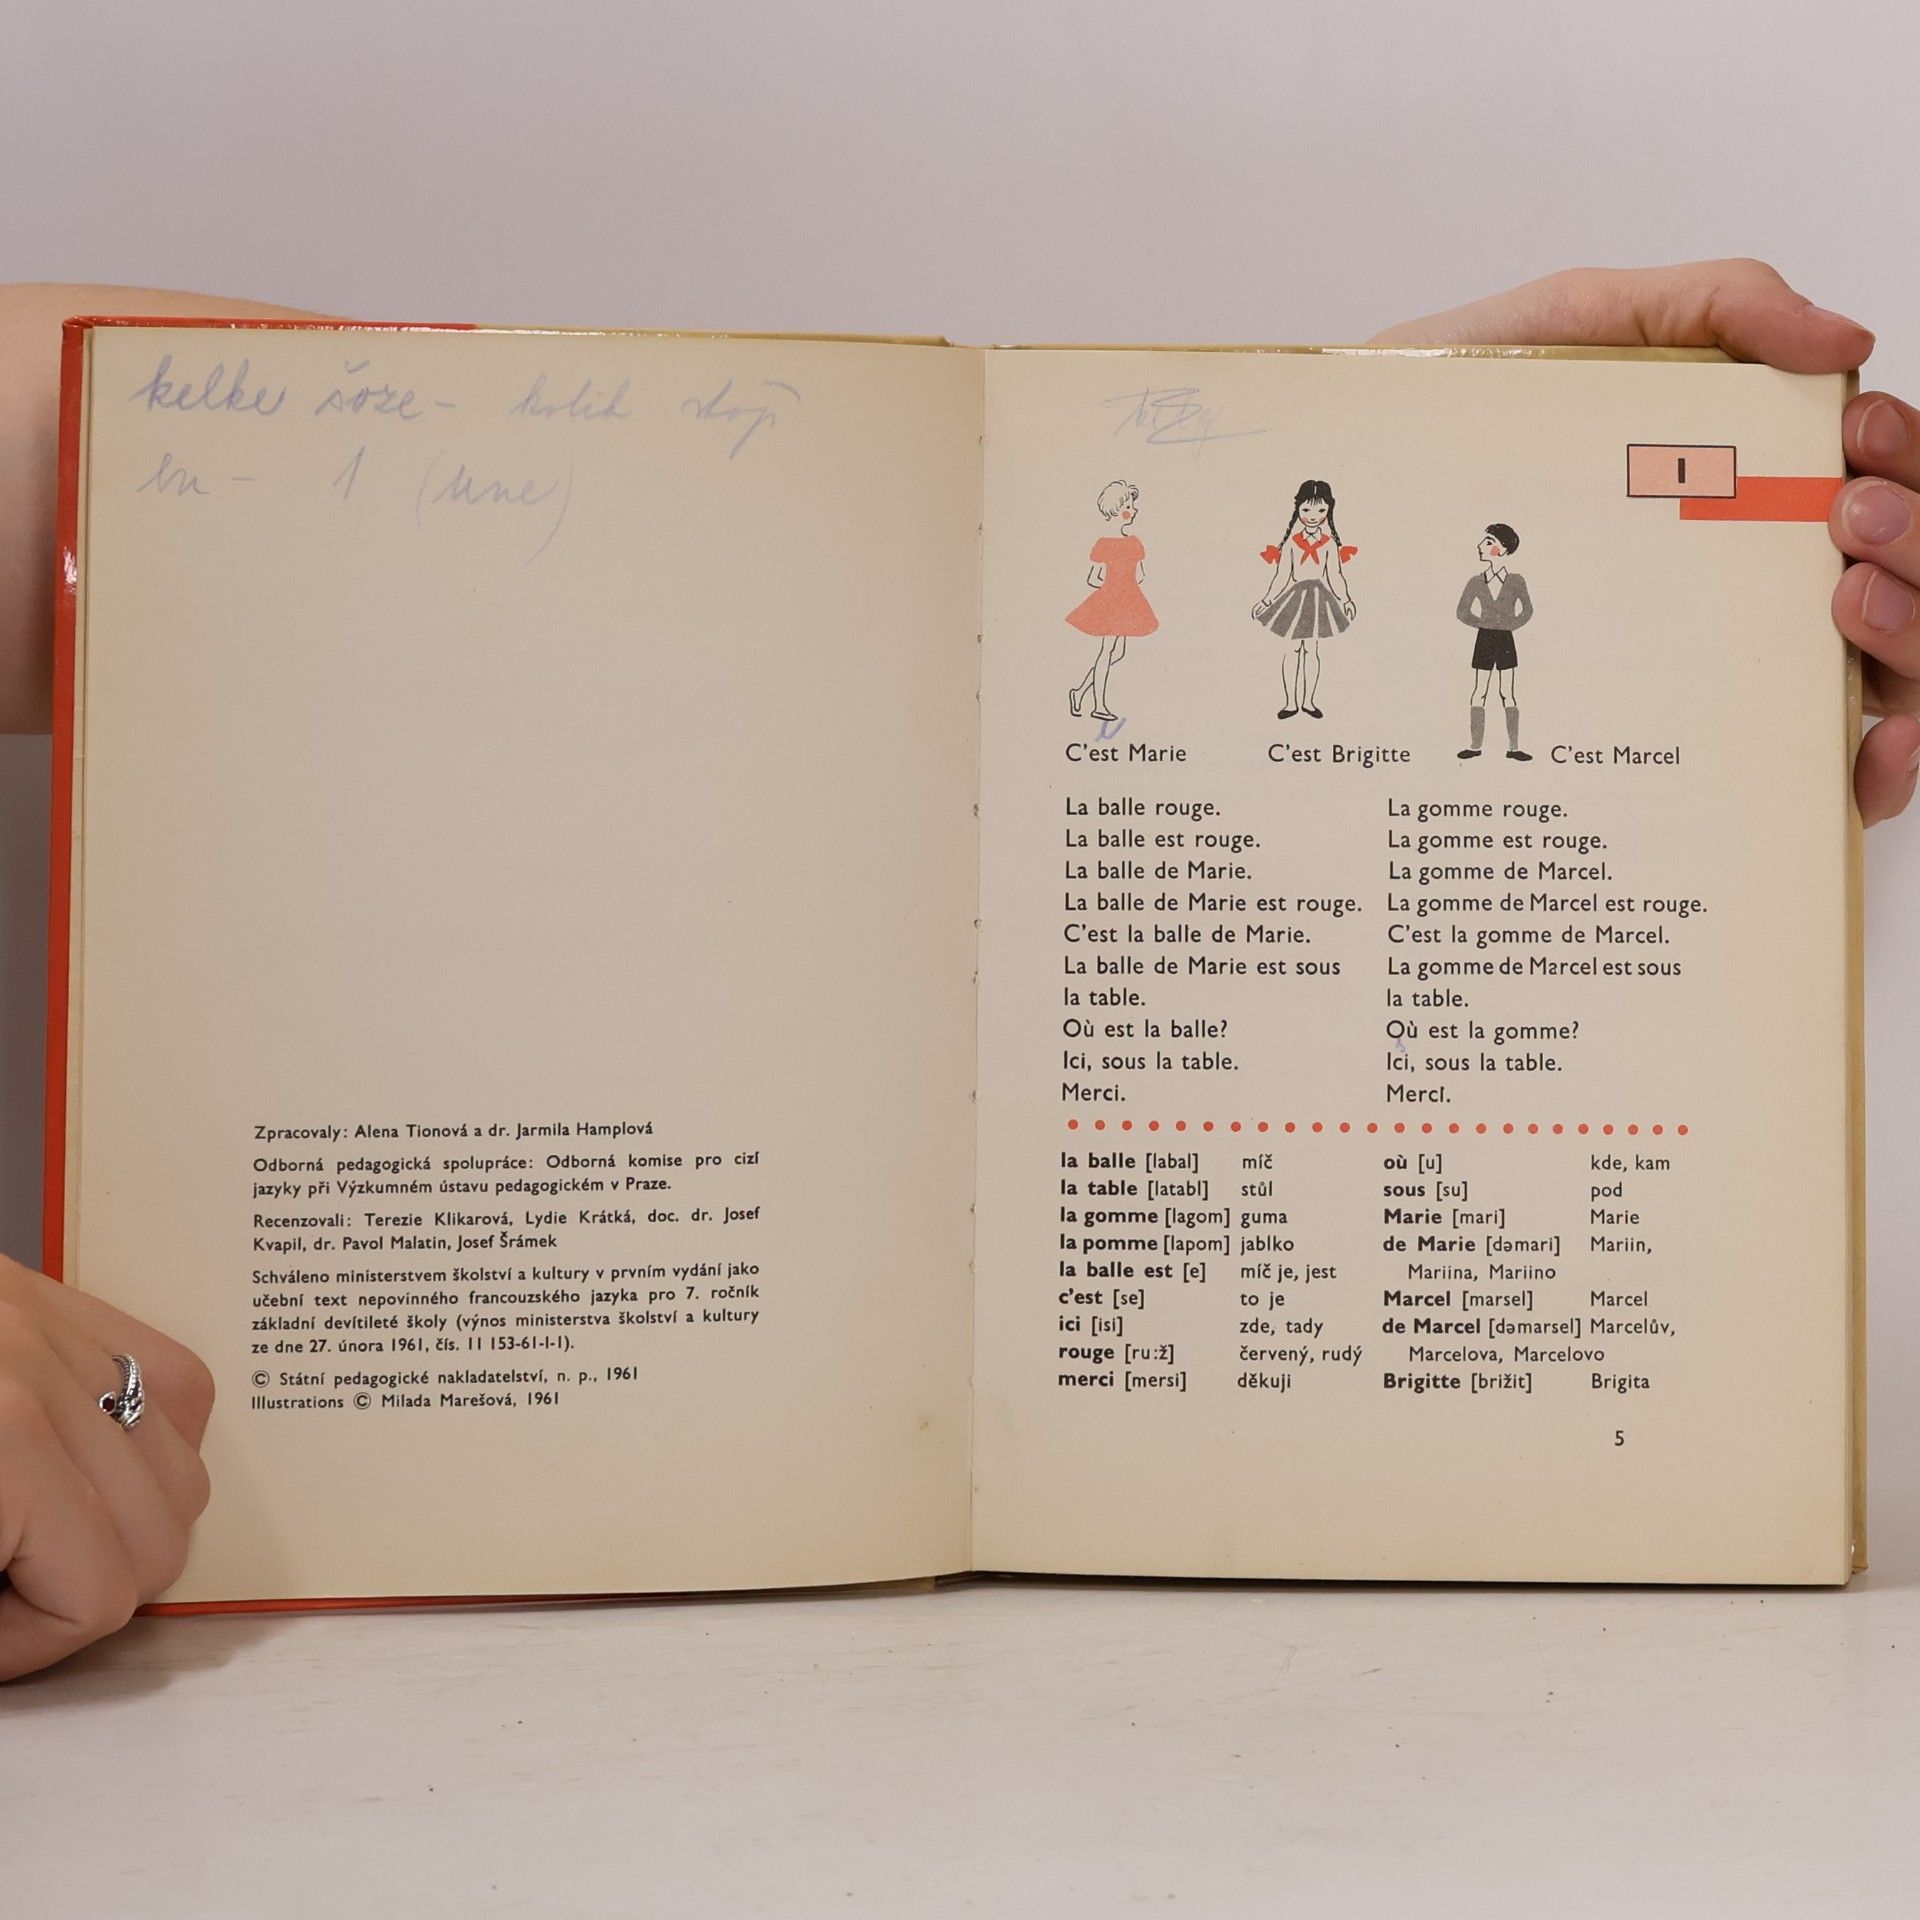 kelke šoze - kolik stojí
en - 1 (une)
Zpracovaly: Alena Tionová a dr. Jarmila Hamplová
Odborná pedagogická spolupráce: Odborná komise pro cizí
jazyky při Výzkumném ústavu pedagogickém v Praze.
Recenzovali: Terezie Klikarová, Lydie Krátká, doc. dr. Josef
Kvapil, dr. Pavol Malatin, Josef Šrámek
Schváleno ministerstvem školství a kultury v prvním vydání jako
učební text nepovinného francouzského jazyka pro 7. ročník
základní devítileté školy (výnos ministerstva školství a kultury
ze dne 27. února 1961, čís. II 153-61-I-1).
© Státní pedagogické nakladatelství, n. p., 1961
Illustrations © Milada Marešová, 1961
I
C'est Marie C'est Brigitte C'est Marcel
La balle rouge.
La balle est rouge.
La balle de Marie.
La balle de Marie est rouge.
C'est la balle de Marie.
La balle de Marie est sous
la table.
Où est la balle?
Ici, sous la table.
Merci.
La gomme rouge.
La gomme est rouge.
La gomme de Marcel.
La gomme de Marcel est rouge.
C'est la gomme de Marcel.
La gomme de Marcel est sous
la table.
Où est la gomme?
Ici, sous la table.
Merci.
la balle [labal] míč
la table [latabl] stůl
la gomme [lagom] guma
la pomme [lapom] jablko
la balle est [e] míč je, jest
c'est [se] to je
ici [isi] zde, tady
rouge [ru:ž] červený, rudý
merci [mersi] děkuji
où [u] kde, kam
sous [su] pod
Marie [mari] Marie
de Marie [dəmari] Mariin,
Mariina, Mariino
Marcel [marsel] Marcel
de Marcel [dəmarsel] Marcelův,
Marcelova, Marcelovo
Brigitte [brižit] Brigita
5